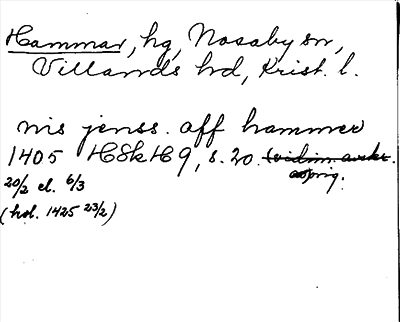 Hammar, hg, Nosaby sn,
Villands hd, Krist. l.
nis jenss. aff hammer
1405 HSkH 9, s. 20.
20/2 el. 6/3
(hdl. 1425 23/2)